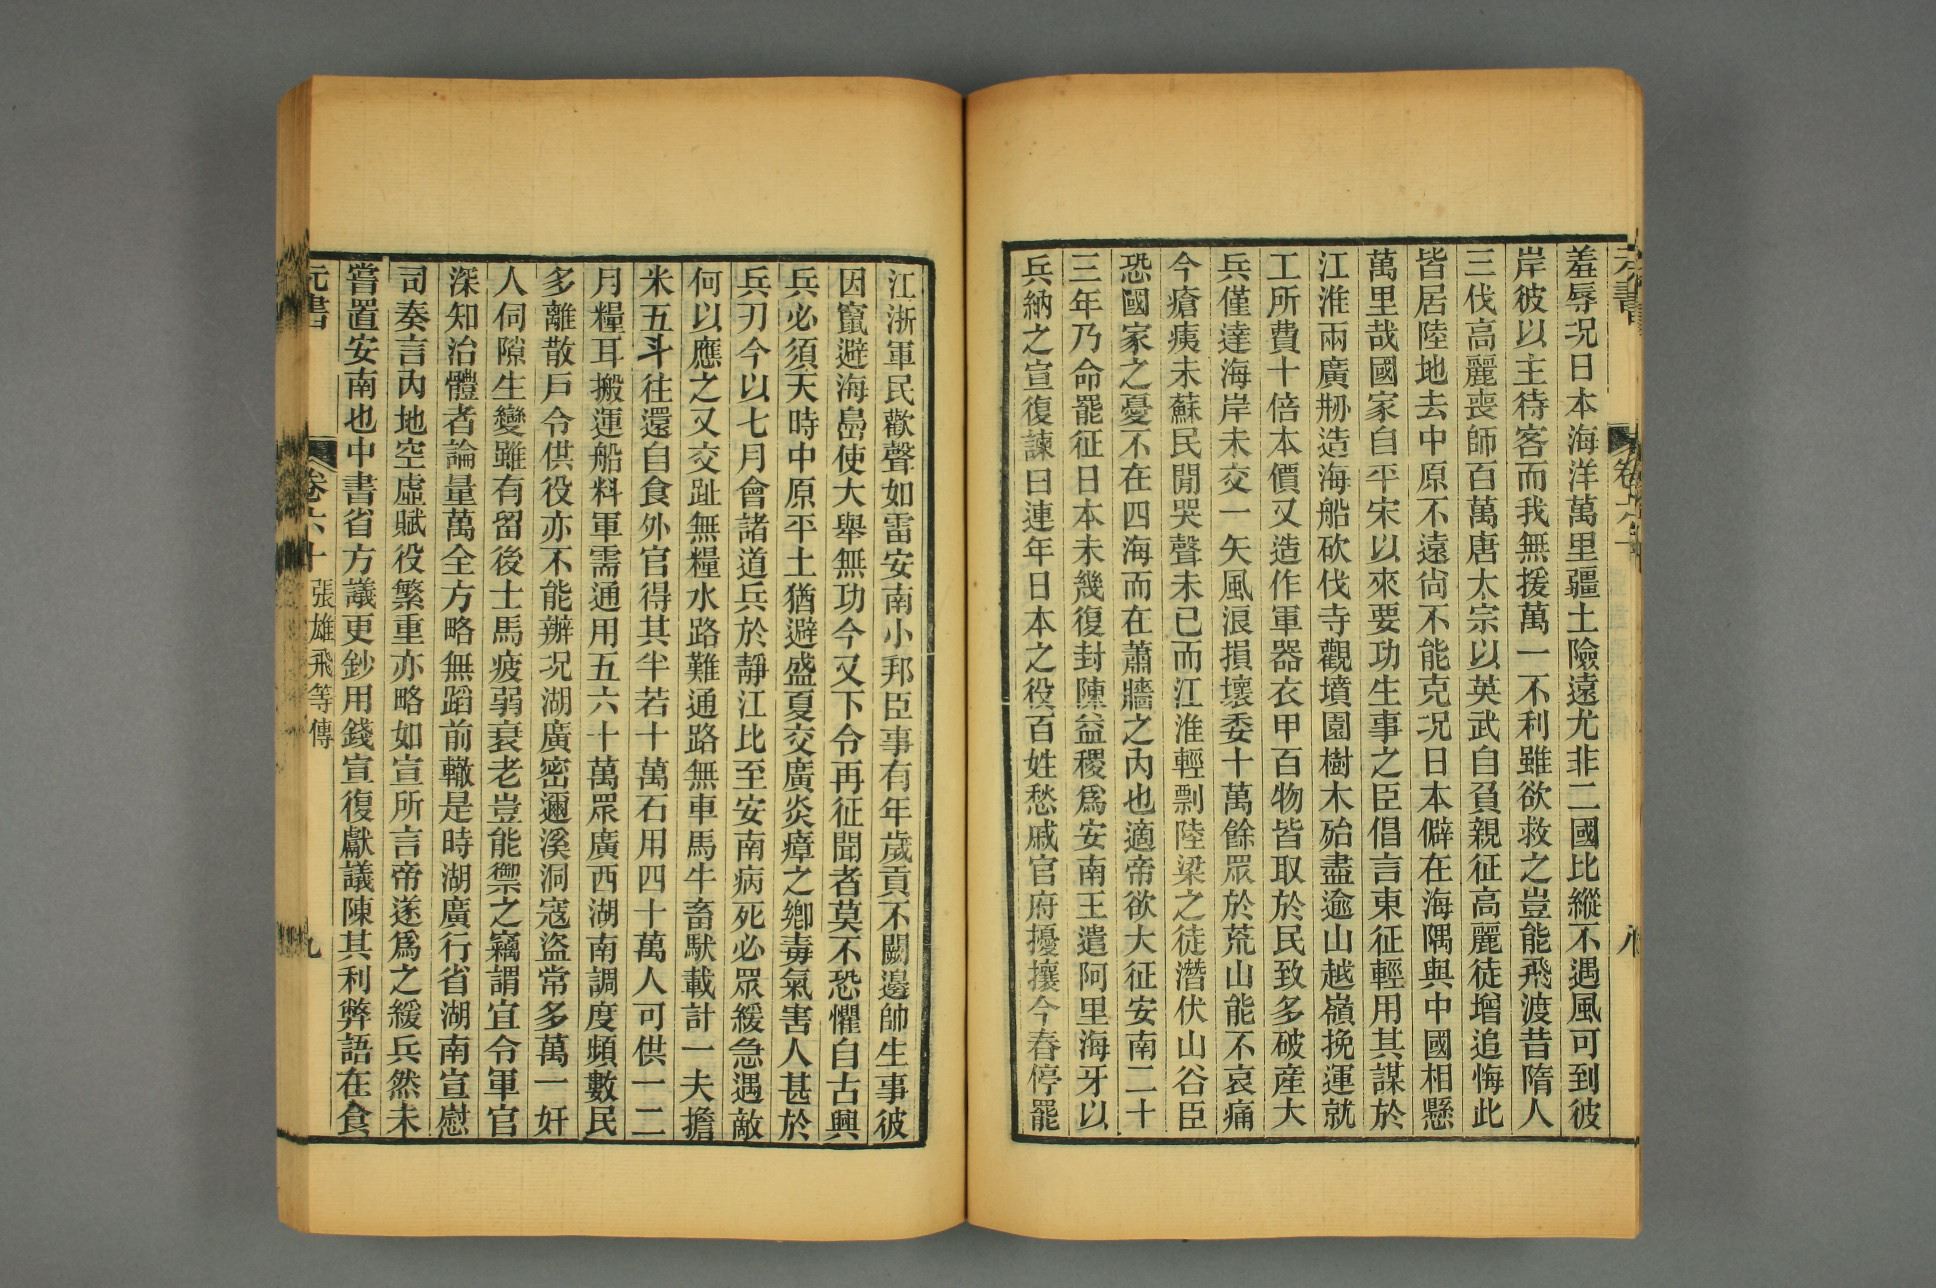 羞辱况日本海洋萬里疆土險遠尤非二國比縱不遇風可到彼
岸彼以主待客而我無援萬一不利雖欲救之豈能飛渡昔隋人
三伐高麗喪師百萬唐太宗以英武自負親征高麗徒增追悔此
皆居陸地去中原不遠尙不能克况日本僻在海隅與中國相懸
萬里哉國家自平宋以來要功生事之臣倡言東征輕用其謀於
江淮兩廣刱造海船砍伐寺觀墳園樹木殆盡逾山越嶺挽運就
工所費十倍本價又造作軍器衣甲百物皆取於民致多破産大
兵僅達海岸未交一矢風浪損壞委十萬餘眾於荒山能不哀痛
今瘡痍未蘇民閒哭聲未已而江淮輕剽陸梁之徒潛伏山谷臣
恐國家之憂不在四海而在蕭牆之內也適帝欲大征安南二十
三年乃命罷征日本未幾復封陳益稷爲安南王遣阿里海牙以
兵納之宣復諫曰連年日本之役百姓愁戚官府擾攘今春停罷
江浙軍民歡聲如雷安南小邦臣事有年歲貢不闕邊帥生事彼
因竄避海嶌使大舉無功今又下令再征聞者莫不恐懼自古興
兵必須天時中原平土猶避盛夏交廣炎瘴之鄉毒氣害人甚於
兵刃今以七月會諸道兵於靜江比至安南病死必眾緩急遇敵
何以應之又交趾無糧水路難通路無車馬牛畜馱載計一夫擔
米五斗往還自食外官得其半若十萬石用四十萬人可供一二
月糧耳搬運船料軍需通用五六十萬眾廣西湖南調度頻數民
多離散戶令供役亦不能辦况湖廣密邇溪洞寇盜常多萬一奸
人伺隙生變雖有留後士馬疲弱衰老豈能禦之竊謂宜令軍官
深知治體者論量萬全方略無蹈前轍是時湖廣行省湖南宣慰
司奏言內地空虛賦役繁重亦略如宣所言帝遂爲之緩兵然未
嘗置安南也中書省方議更鈔用錢宣復獻議陳其利弊語在食
元書
卷六十
張雄飛等傳
九